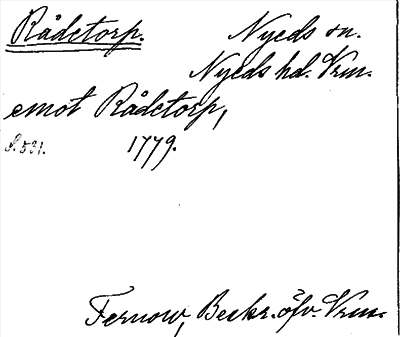 Rådetorp. Nyeds sn.
Nyeds hd. Vrm.
emot Rådetorp,
S. 531. 1779.
Fernow, Beskr. öfv. Vrm.